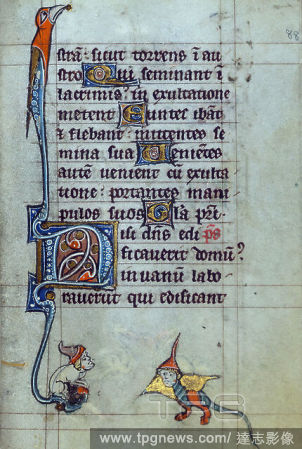 88
stram: sicut torrens i au
stro Qui seminant i
lacrimis: in exultatione
metent Euntes ibāt
et flebant: mittentes se
mina sua Veniētes
autē venient cū exulta
tione: portantes mani
pulos suos Gľa pří.
Nisi dn̄s edi ps̄
ficaverit domū:
in vanū labo
raverūt qui edificant
TPG
www.tpgnews.com / 達志影像